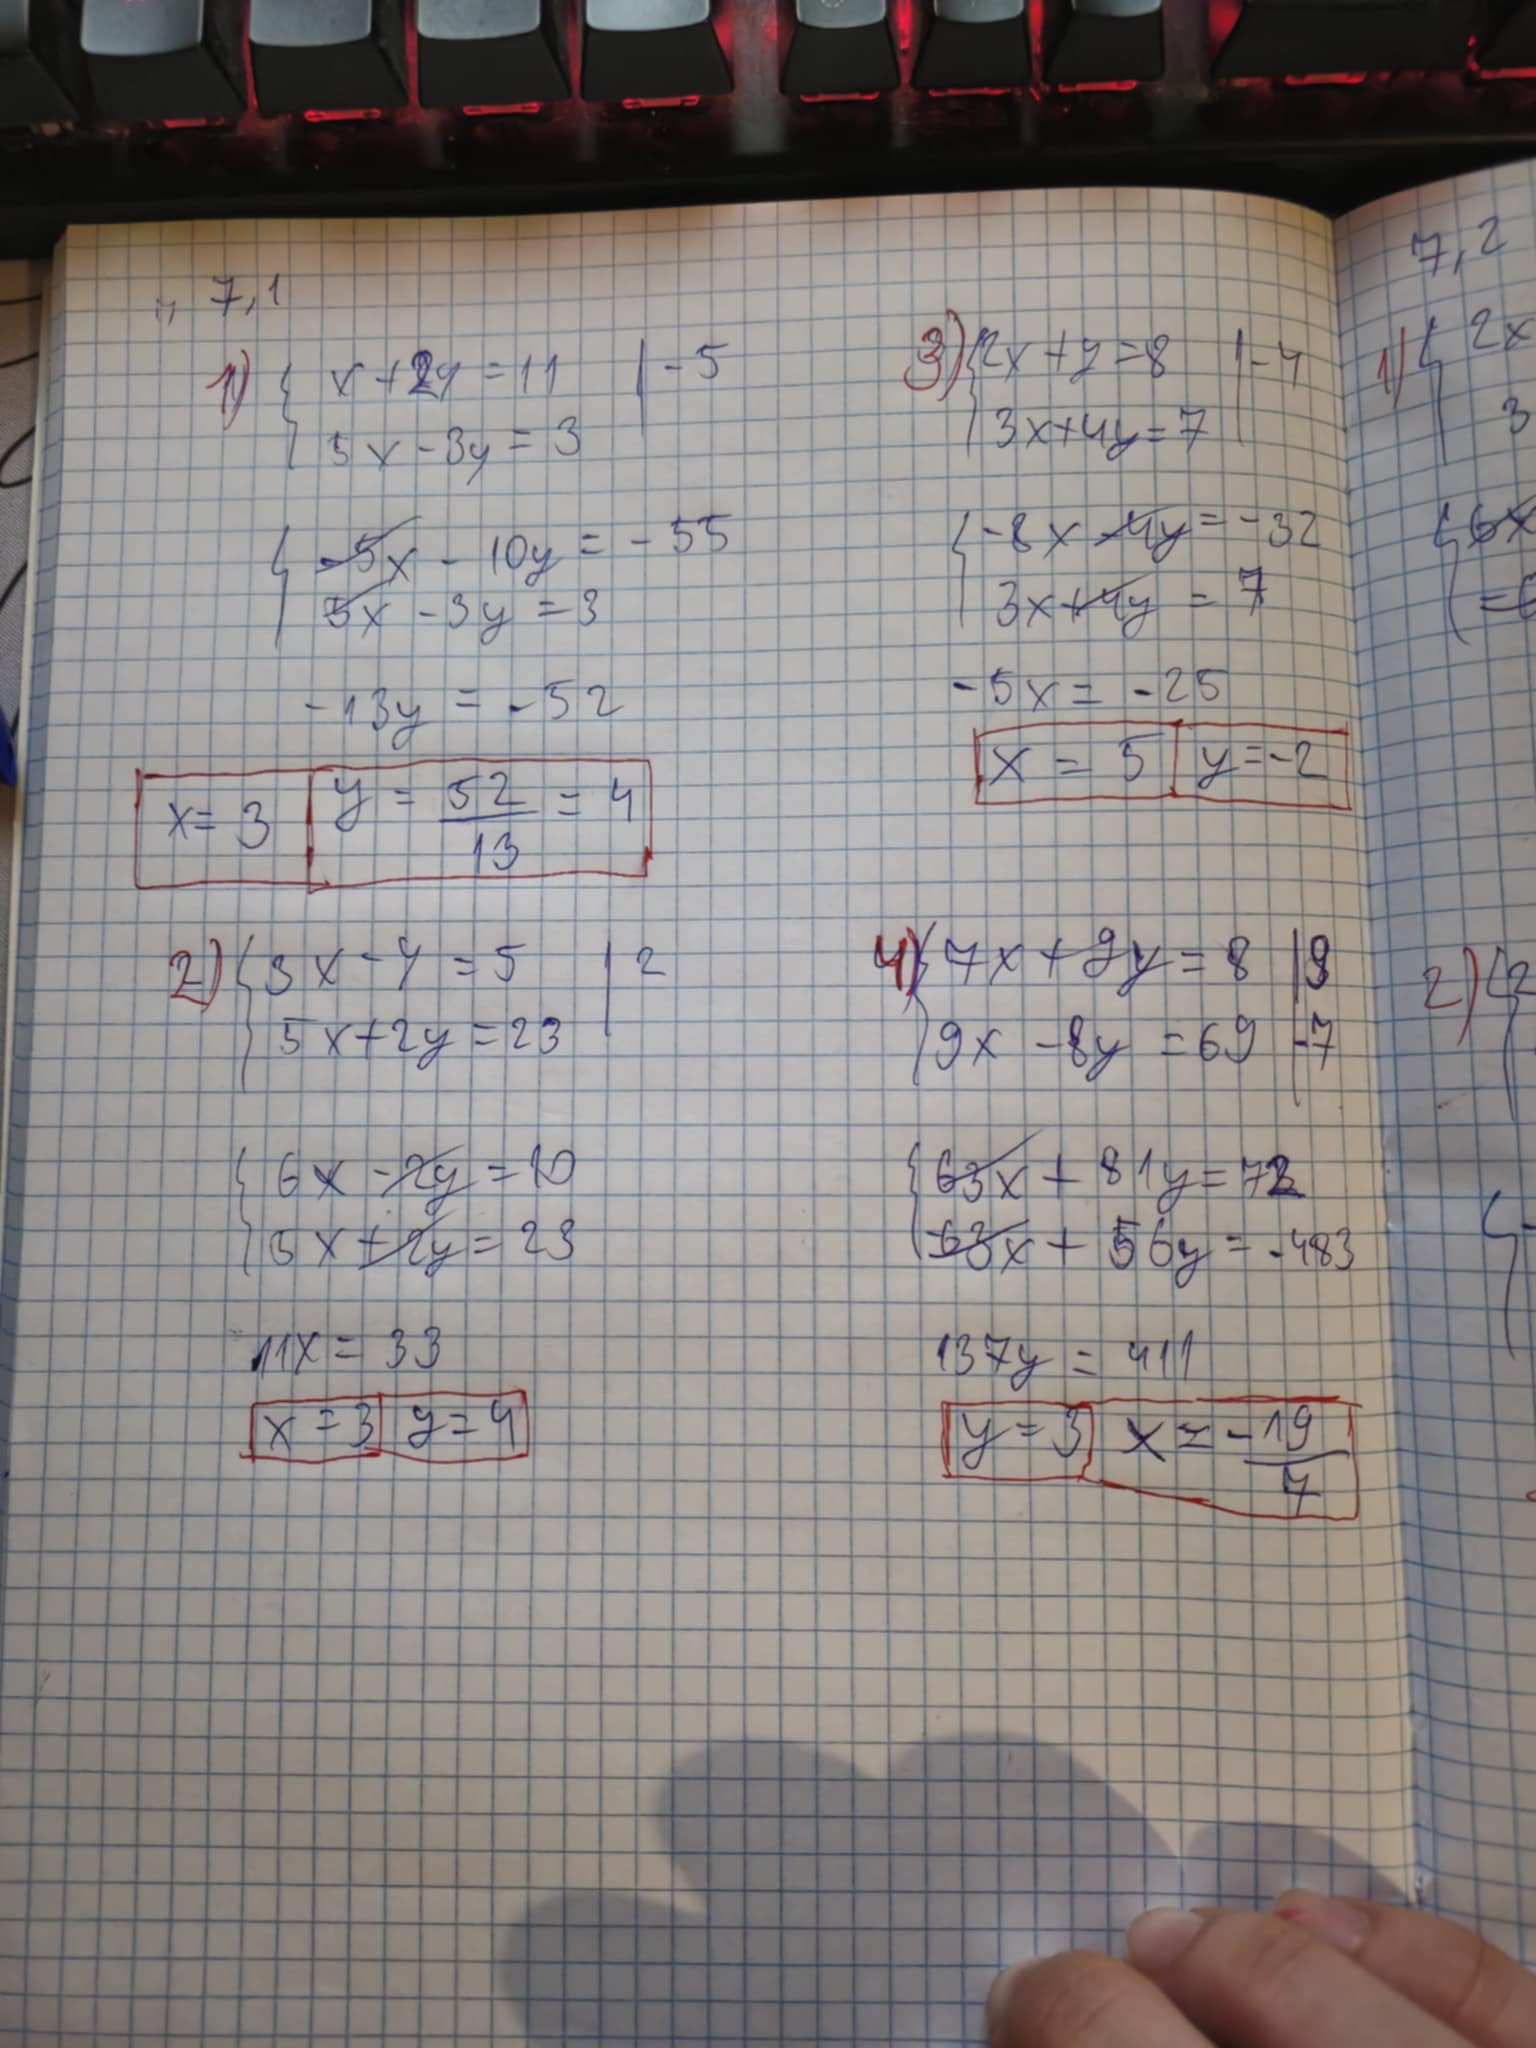 7,1
1) { x + 2y = 11 | -5
5x - 3y = 3
{ -5x - 10y = -55
5x - 3y = 3
-13y = -52
x = 3 y = 52/13 = 4
2) { 3x - y = 5 | 2
5x + 2y = 23
{ 6x - 2y = 10
5x + 2y = 23
11x = 33
x = 3 y = 4
3) { 2x + y = 8 | -4
3x + 4y = 7
{ -8x - 4y = -32
3x + 4y = 7
-5x = -25
x = 5 y = -2
4) { 7x + 9y = 8 | 9
9x - 8y = 69 | -7
{ 63x + 81y = 72
-63x + 56y = -483
137y = 411
y = 3 x = -19/7
7,2
1) { 2x
3
{ 6x
2) { 2